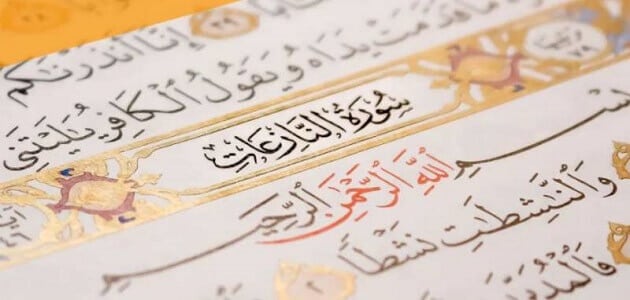 إِنَّا أَنذَرْنَاكُمْ
مَا قَدَّمَتْ يَدَاهُ وَيَقُولُ الْكَافِرُ يَٰلَيْتَنِي
سُورَةُ النَّازِعَاتِ
بِسْمِ اللَّهِ الرَّحْمَٰنِ الرَّحِيمِ
وَالنَّٰشِطَٰتِ نَشْطًا
فَالْمُدَبِّرَٰتِ